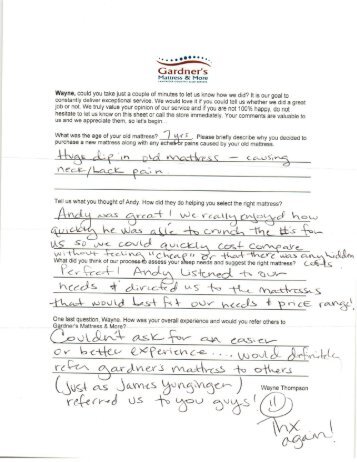 Gardner's
Mattress & More
Wayne, could you take just a couple of minutes to let us know how we did? It is our goal to
constantly deliver exceptional service. We would love it if you could tell us whether we did a great
job or not. We truly value your opinion of our service and if you are not 100% happy, do not
hesitate to let us know on this sheet or call the store immediately. Your comments are valuable to
us and we appreciate them, so let's begin . .
What was the age of your old mattress? 7 yrs. Please briefly describe why you decided to
purchase a new mattress along with any aches or pains caused by your old mattress.
Huge dip in old mattress - causing
neck/back pain.
Tell us what you thought of Andy. How did they do helping you select the right mattress?
Andy was great! We really enjoyed how
quickly he was able to crunch the #s for
us so we could quickly cost compare
without feeling "cheap" or that there was any hidden
What did you think of our process to assess your sleep needs and suggest the right mattress? costs
Perfect! Andy listened to our
needs & directed us to the mattresses
that would best fit our needs & price range!
One last question, Wayne. How was your overall experience and would you refer others to
Gardner's Mattress & More?
Couldn't ask for an easier
or better experience.... would definitely
refer gardners mattress to others
(just as James Yunginger) Wayne Thompson
referred us to you guys!
Thx
again!